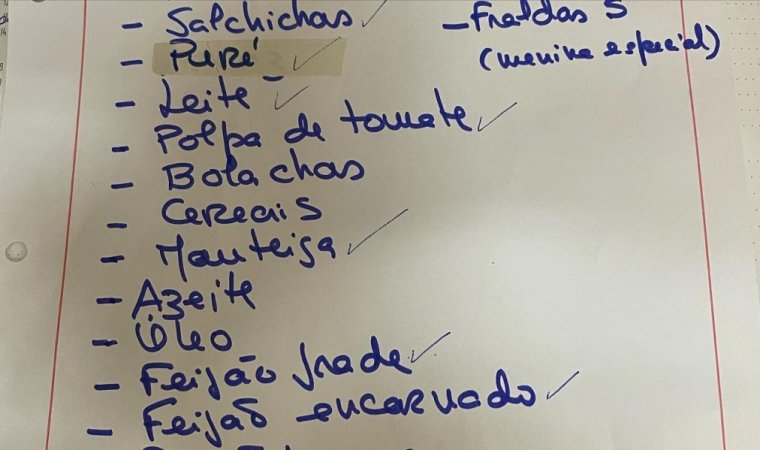 - Salchichas ✓
- Puré ✓
- Leite ✓
- Polpa de tomate ✓
- Bolachas
- Cereais
- Manteiga ✓
- Azeite
- Óleo
- Feijão frade ✓
- Feijão encarnado ✓
- Fraldas S
(menina especial)